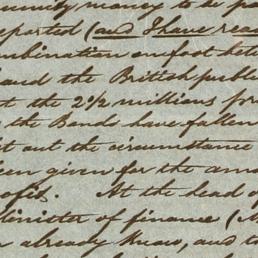 money to be pa
eported (and I have reas
mbination on foot betw
and the British public
t the 2½ millions for
the Bonds have fallen
t out the circumstance
een given for the amo
ofis. At the head of
Minister of finance (M
already know, and to